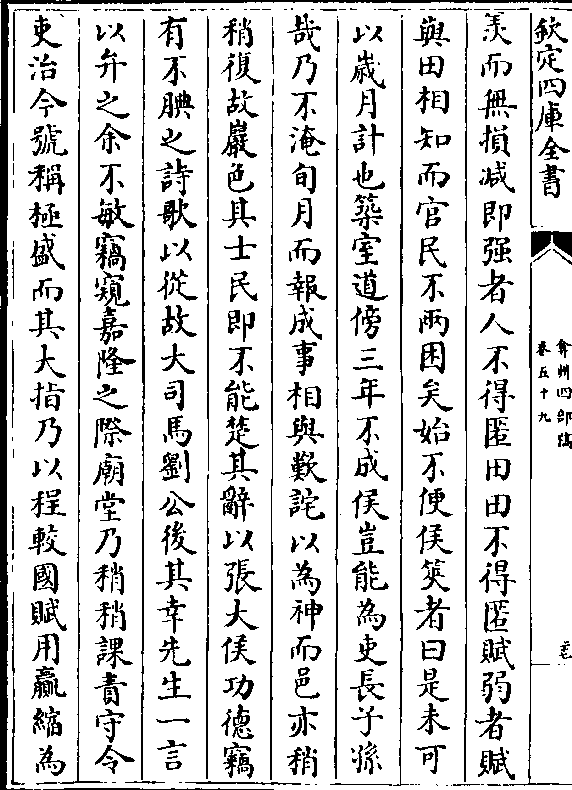 欽定四庫全書
弇州四部稿
卷五十九
羙而無損減即强者人不得匿田田不得匿賦弱者賦
與田相知而官民不兩困矣始不便侯筴者曰是未可
以歲月計也築室道傍三年不成侯豈能為吏長子孫
哉乃不淹旬月而報成事相與歎詫以為神而邑亦稍
稍復故巖色其士民即不能楚其辭以張大侯功德竊
有不腆之詩歌以從故大司馬劉公後其幸先生一言
以弁之余不敏竊窺嘉隆之際廟堂乃稍稍課責守令
吏治今號稱極盛而其大指乃以程較國賦用贏縮為